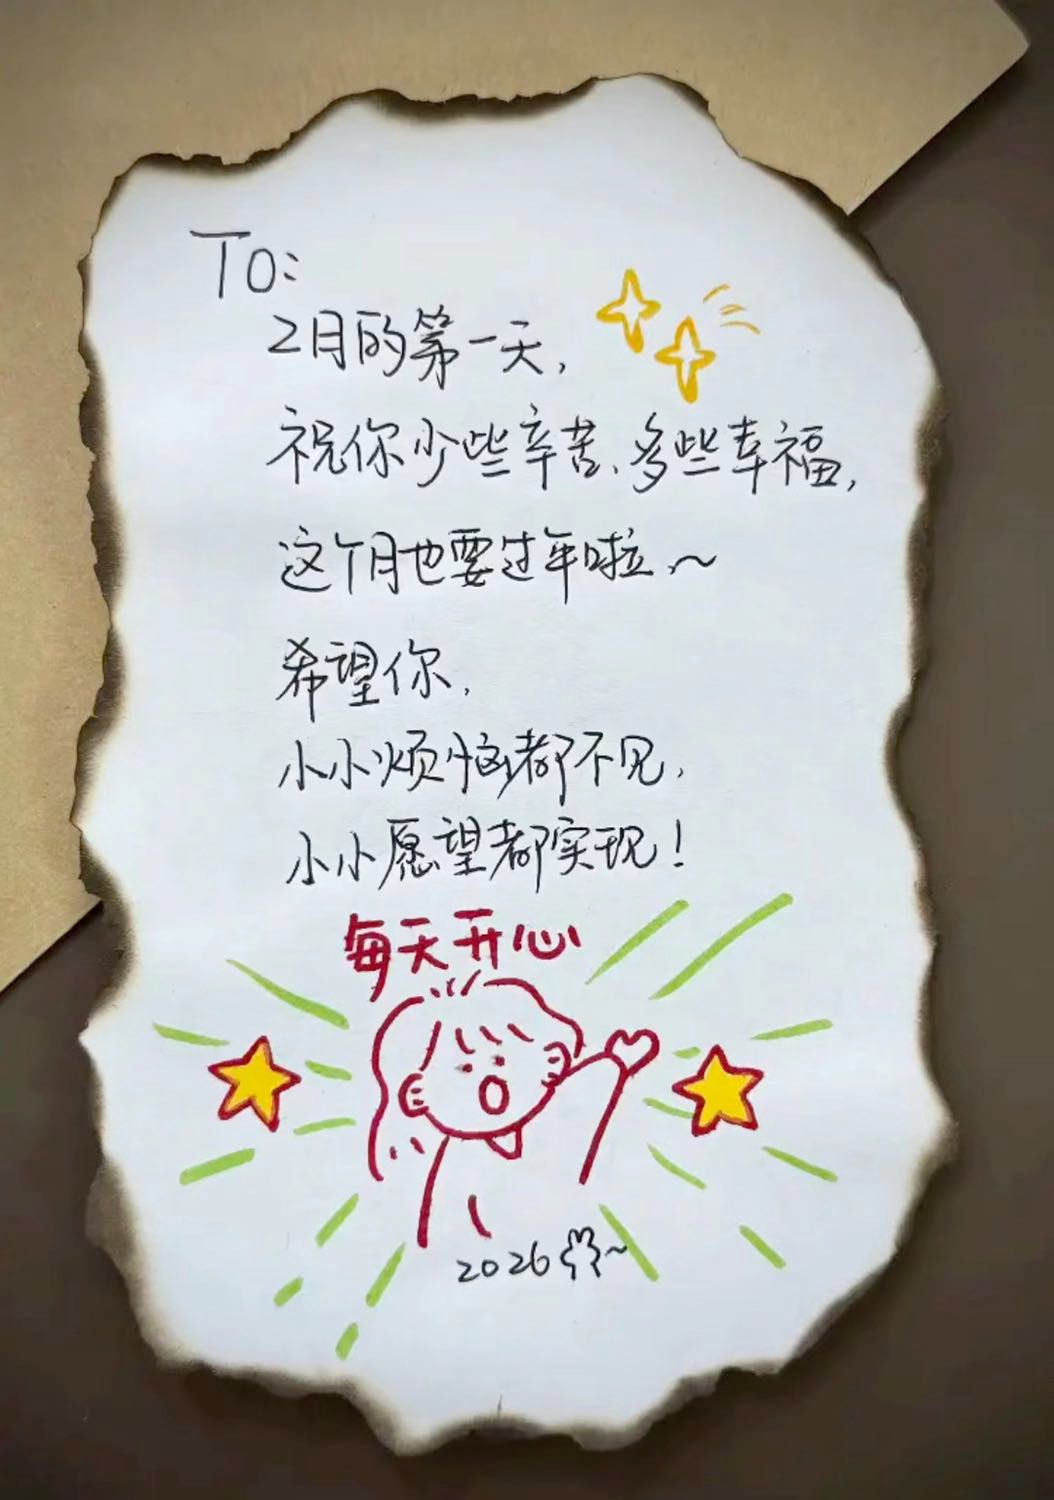 TO:
2月的第一天,
祝你少些辛苦、多些幸福,
这个月也要过年啦、~
希望你,
小小烦恼都不见,
小小愿望都实现!
每天开心
2026~